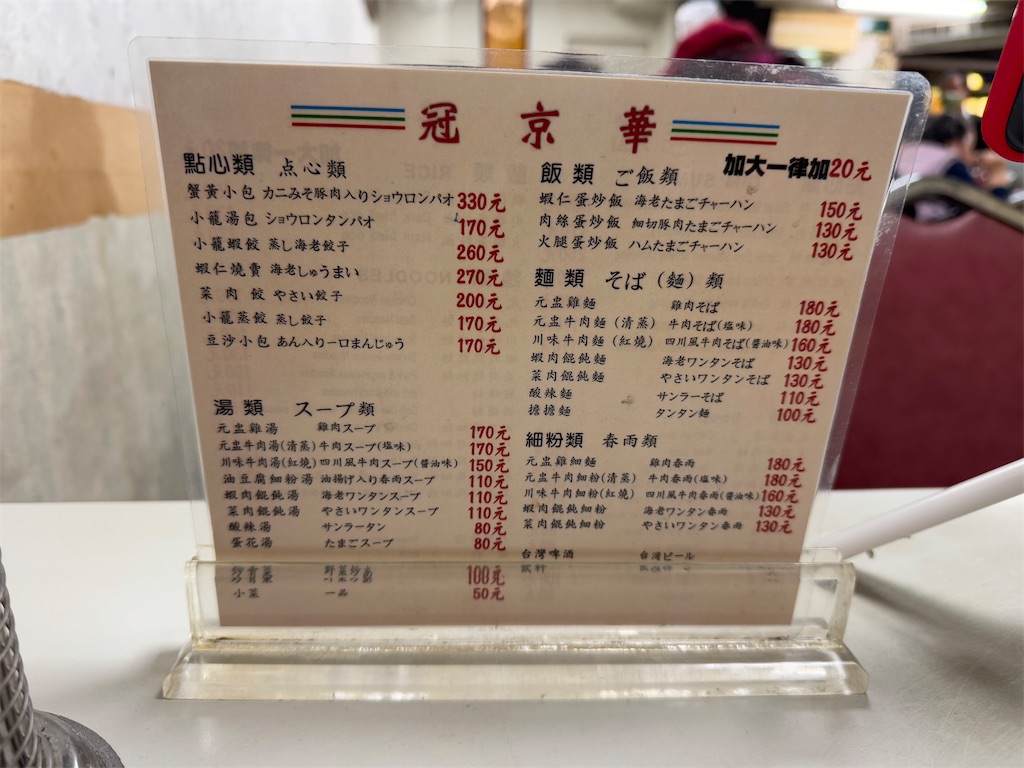 冠京華
點心類 点心類
蟹黃小包 カニみそ豚肉入りショウロンパオ 330元
小籠湯包 ショウロンタンパオ 170元
小籠蝦餃 蒸し海老餃子 260元
蝦仁燒賣 海老しゅうまい 270元
菜肉餃 やさい餃子 200元
小籠蒸餃 蒸し餃子 170元
豆沙小包 あん入り一口まんじゅう 170元
湯類 スープ類
元盅雞湯 雞肉スープ 170元
元盅牛肉湯(清蒸) 牛肉スープ(塩味) 170元
川味牛肉湯(紅燒) 四川風牛肉スープ(醬油味) 150元
油豆腐細粉湯 油揚げ入り春雨スープ 110元
蝦肉餛飩湯 海老ワンタンスープ 110元
菜肉餛飩湯 やさいワンタンスープ 110元
酸辣湯 サンラータン 80元
蛋花湯 たまごスープ 80元
100元
小菜 一品 50元
加大一律加20元
飯類 ご飯類
蝦仁蛋炒飯 海老たまごチャーハン 150元
肉絲蛋炒飯 細切豚肉たまごチャーハン 130元
火腿蛋炒飯 ハムたまごチャーハン 130元
麵類 そば(麵)類
元盅雞麵 雞肉そば 180元
元盅牛肉麵(清蒸) 牛肉そば(塩味) 180元
川味牛肉麵(紅燒) 四川風牛肉そば(醬油味) 160元
蝦肉餛飩麵 海老ワンタンそば 130元
菜肉餛飩麵 やさいワンタンそば 130元
酸辣麵 サンラーそば 110元
擔擔麵 タンタン麵 100元
細粉類 春雨類
元盅雞細麵 雞肉春雨 180元
元盅牛肉細粉(清蒸) 牛肉春雨(塩味) 180元
川味牛肉細粉(紅燒) 四川風牛肉春雨(醬油味) 160元
蝦肉餛飩細粉 海老ワンタン春雨 130元
菜肉餛飩細粉 やさいワンタン春雨 130元
台灣啤酒 台湾ビール
飲料